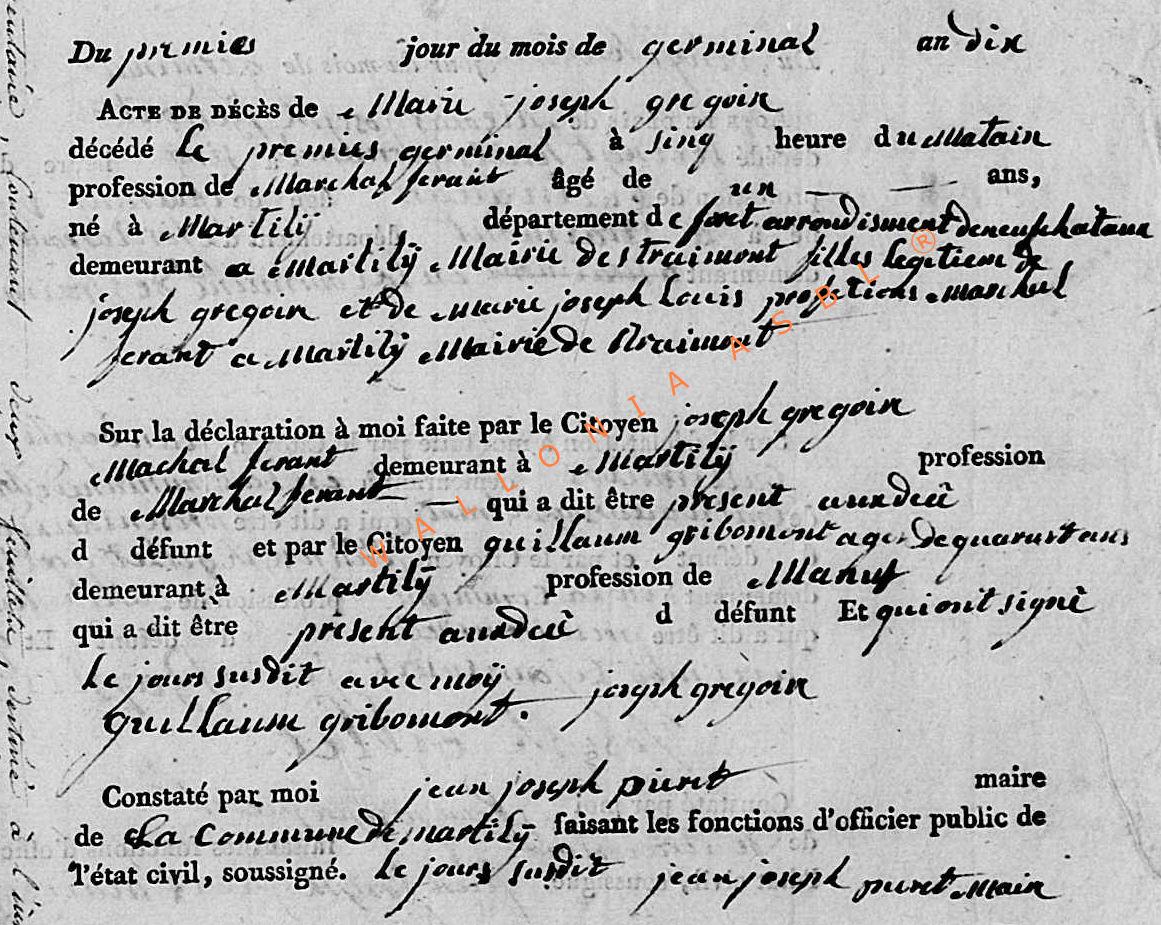 Du premies jour du mois de germinal an dix
ACTE DE DÉCÈS de Marie joseph gregoir
décédé Le premies germinal à sinq heure du Matain
profession de Marchal ferant âgé de un ans,
né à Martilÿ département de foret arrondisment de neufchataux
demeurant a Martilÿ Mairie de straimont filles legitiem de
joseph gregoir et de Marie joseph Louis Marchal
ferant a Martilÿ Mairie de straimont
Sur la déclaration à moi faite par le Citoyen joseph gregoir
Machal ferant demeurant à Martilÿ profession
de Marchal ferant qui a dit être present
d défunt et par le Citoyen guillaum gribomont age de
demeurant à Martilÿ profession de
qui a dit être present d défunt Et qui ont signé
Le jours susdit avec moÿ joseph gregoir
guillaum gribomont.
Constaté par moi jean joseph piret maire
de La Commune de martilÿ faisant les fonctions d'officier public de
l'état civil, soussigné. Le jours susdit jean joseph piret Mair
WALLONIA ASBL ®